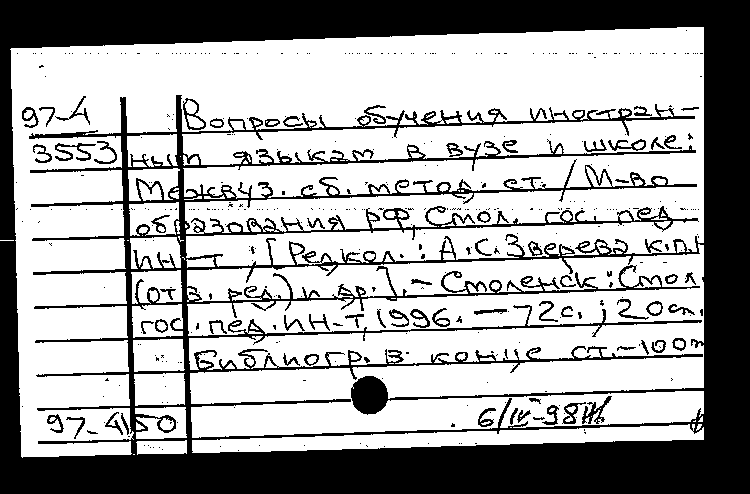 97-4 Вопросы обучения иностран-
3553 ным языкам в вузе и школе:
Межвуз. сб. метод. ст. / М-во
образования РФ, Смол. гос. пед.
ин-т ; [Редкол.: А.С.Зверева, к.п.н
(отв. ред.) и др.]. - Смоленск : Смол.
гос. пед. ин-т, 1996. - 72с. ; 20см.
Библиогр. в конце ст. - 100
97-4150 6/IV-98